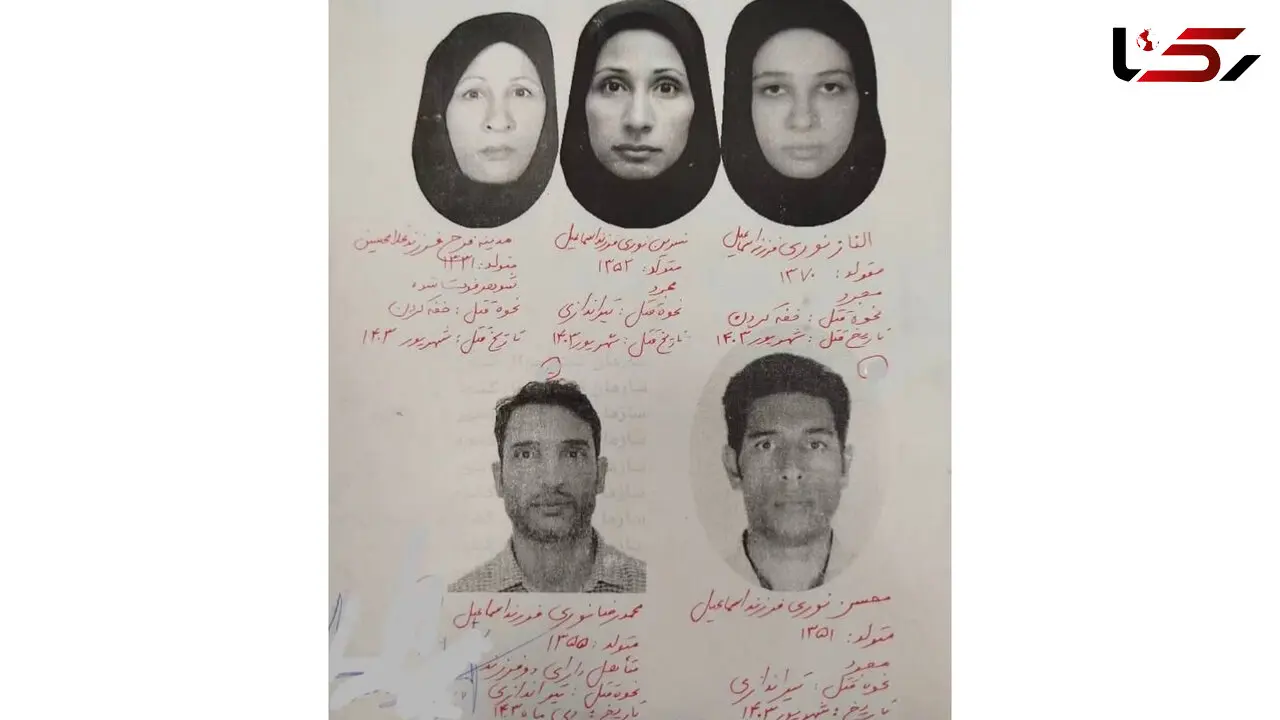 رکنا
الناز نوری فرزند اسماعیل
متولد: ۱۳۷۰
مجرد
نحوه قتل: خفه کردن
تاریخ قتل: شهریور ۱۴۰۳
نسرین نوری فرزند اسماعیل
متولد: ۱۳۵۲
مجرد
نحوه قتل: تیراندازی
تاریخ قتل: شهریور ۱۴۰۳
مدینه فرخ فرزند غلامحسین
متولد: ۱۳۳۱
شوهر فوت شده
نحوه قتل: خفه کردن
تاریخ قتل: شهریور ۱۴۰۳
محسن نوری فرزند اسماعیل
متولد: ۱۳۵۱
مجرد
نحوه قتل: تیراندازی
تاریخ: شهریور ۱۴۰۳
محمدرضا نوری فرزند اسماعیل
متولد: ۱۳۵۵
متأهل دارای دو فرزند
نحوه قتل: تیراندازی
تاریخ: دی ماه ۱۴۰۳